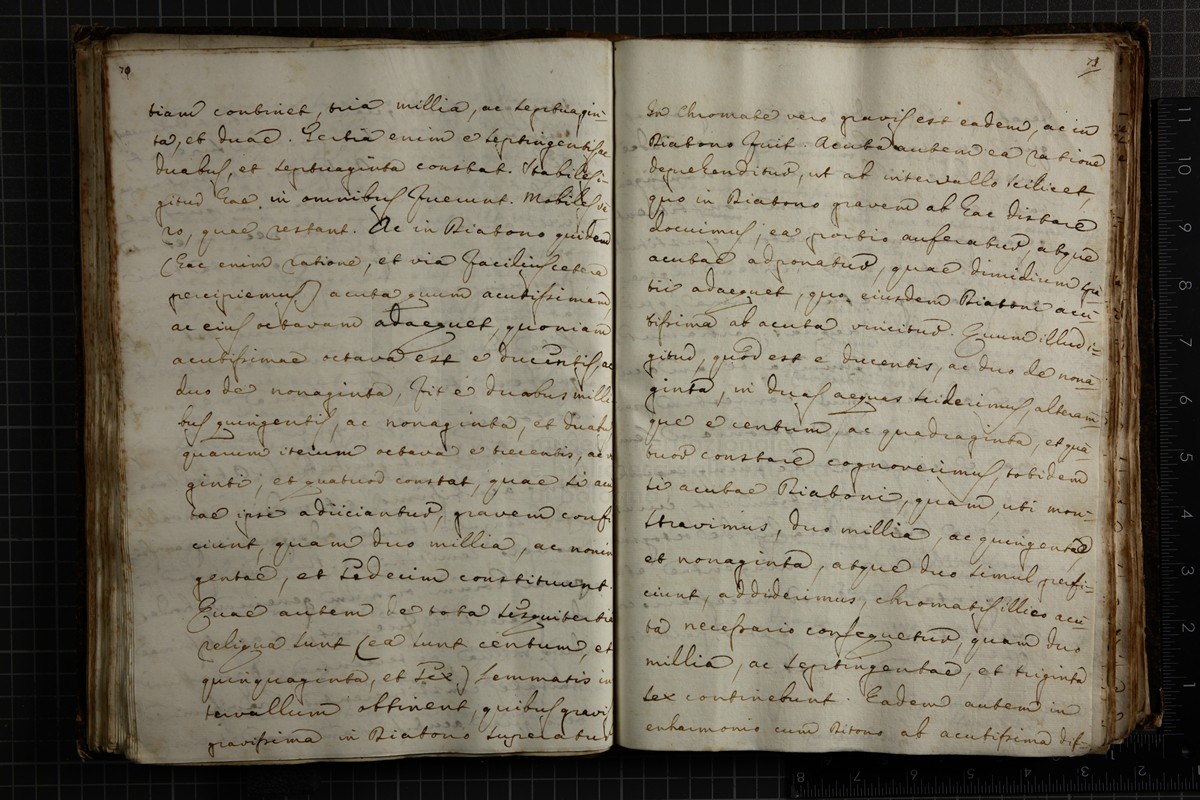 70
tiam continet, tria millia, ac septuagin-
ta, et duae. Tertia enim e septingentis, ac
duabus, et septuaginta constat. Stabiles i-
gitur hae in omnibus fuerunt. Mobiles ve
ro, quae restant. Ac in Diatono quidem
(hac enim ratione, et via facilius cetera
percipiemus) acuta quum acutissimam,
ac eius octavam adaequet, quoniam
acutissimae octava est e ducentis, ac
duo de nonaginta, fit e duabus milli
bus quingentis, ac nonaginta, et duabus
quarum iterum octava e trecentis, ac vi
ginti, et quatuor constat, quae si acu
tae ipsi adiiciantur, gravem confi
ciunt, quam duo millia, ac nonin
gentae, et sedecim constituunt.
Quae autem de tota sesquitertia
reliqua sunt (ea sunt centum, et
quinquaginta, et sex) lemmatis in
tervallum obtinent, quibus gravis
gravissima in Diatono superatur
71
In Chromate vero gravis est eadem, ac in
Diatono fuit. Acuta autem ea ratione
deprehenditur, ut ab intervallo scilicet,
quo in Diatono gravem ab hac distare
docuimus, ea portio auferatur, atque
acutae adponatur, quae dimidium spa
tii adaequet, quo eiusdem Diatoni acu-
tissima ab acuta vincitur. Quum illud i-
gitur, quod est e ducentis, ac duo de nona
ginta, in duas aequas sciderimus, alteram
que e centum, ac quadraginta, et qua
tuor constare cognoverimus, totidem
si acutae Diatoni, quam, uti mon-
stravimus, duo millia, ac quingentae
et nonaginta, atque duo simul perfi-
ciunt, addiderimus, chromatis illico acu
ta necessario consequetur, quam duo
millia, ac septingentae, et triginta
sex continebunt. Eadem autem in
enharmonio cum Ditono ab acutissima dis-